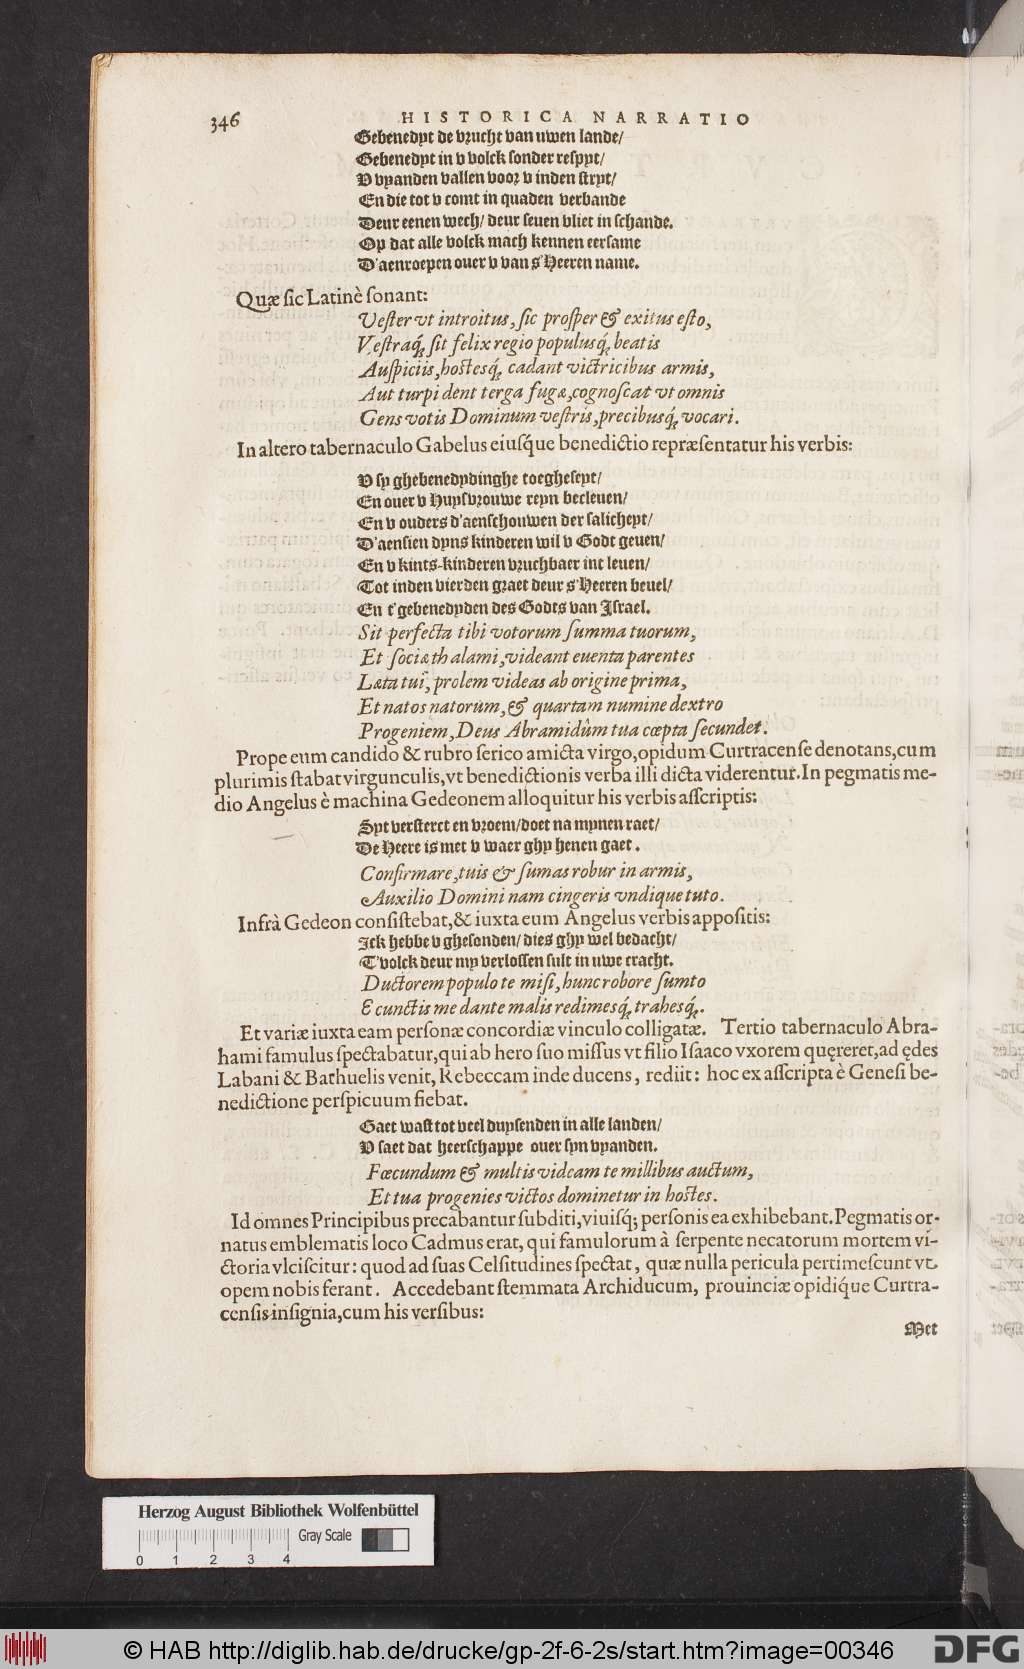 346 HISTORICA NARRATIO
Gebenedyt de vrucht van uwen lande/
Gebenedyt in v volck sonder respyt/
V vyanden vallen voor v inden stryt/
En die tot v comt in quaden verbande
Deur eenen wech/ deur seuen vliet in schande.
Op dat alle volck mach kennen eersame
D'aenroepen ouer v van s'Heeren name.
Quæ sic Latinè sonant:
Vester vt introitus, sic prosper & exitus esto,
Vestraq́; sit felix regio populusq́; beatis
Auspiciis, hostesq́; cadant victricibus armis,
Aut turpi dent terga fugæ, cognoscat vt omnis
Gens votis Dominum vestris, precibusq́; vocari.
In altero tabernaculo Gabelus eiusq́ue benedictio repræsentatur his verbis:
V sy ghebenedydinghe toegheseyt/
En ouer v Huysvrouwe reyn becleuen/
En v ouders d'aenschouwen der salicheyt/
D'aensien dyns kinderen wil v Godt geuen/
En v kints-kinderen vruchbaer int leuen/
Tot inden vierden graet deur s'Heeren beuel/
En t'gebenedyden des Godts van Israel.
Sit perfecta tibi votorum summa tuorum,
Et sociæ thalami, videant euenta parentes
Læta tui, prolem videas ab origine prima,
Et natos natorum, & quartam numine dextro
Progeniem, Deus Abramidûm tua cœpta secundet.
Prope eum candido & rubro serico amicta virgo, opidum Curtracense denotans, cum
plurimis stabat virgunculis, vt benedictionis verba illi dicta viderentur. In pegmatis me-
dio Angelus è machina Gedeonem alloquitur his verbis asscriptis:
Syt versterct en vroem/ doet na mynen raet/
De Heere is met v waer ghy henen gaet.
Confirmare, tuis & sumas robur in armis,
Auxilio Domini nam cingeris vndique tuto.
Infrà Gedeon consistebat, & iuxta eum Angelus verbis appositis:
Ick hebbe v ghesonden/ dies ghy wel bedacht/
T'volck deur my verlossen sult in uwe cracht.
Ductorem populo te misi, hunc robore sumto
E cunctis me dante malis redimesq́; trahesq́;.
Et variæ iuxta eam personæ concordiæ vinculo colligatæ. Tertio tabernaculo Abra-
hami famulus spectabatur, qui ab hero suo missus vt filio Isaaco vxorem quęreret, ad ędes
Labani & Bathuelis venit, Rebeccam inde ducens, rediit: hoc ex asscripta è Genesi be-
nedictione perspicuum fiebat.
Gaet wast tot veel duysenden in alle landen/
V saet dat heerschappe ouer syn vyanden.
Fœcundum & multis videam te millibus auctum,
Et tua progenies victos dominetur in hostes.
Id omnes Principibus precabantur subditi, viuisq́; personis ea exhibebant. Pegmatis or-
natus emblematis loco Cadmus erat, qui famulorum à serpente necatorum mortem vi-
ctoria vlciscitur: quod ad suas Celsitudines spectat, quæ nulla pericula pertimescunt vt
opem nobis ferant. Accedebant stemmata Archiducum, prouinciæ opidiq́ue Curtra-
censis insignia, cum his versibus:
Met
Herzog August Bibliothek Wolfenbüttel
Gray Scale
0 1 2 3 4
© HAB http://diglib.hab.de/drucke/gp-2f-6-2s/start.htm?image=00346
DFG